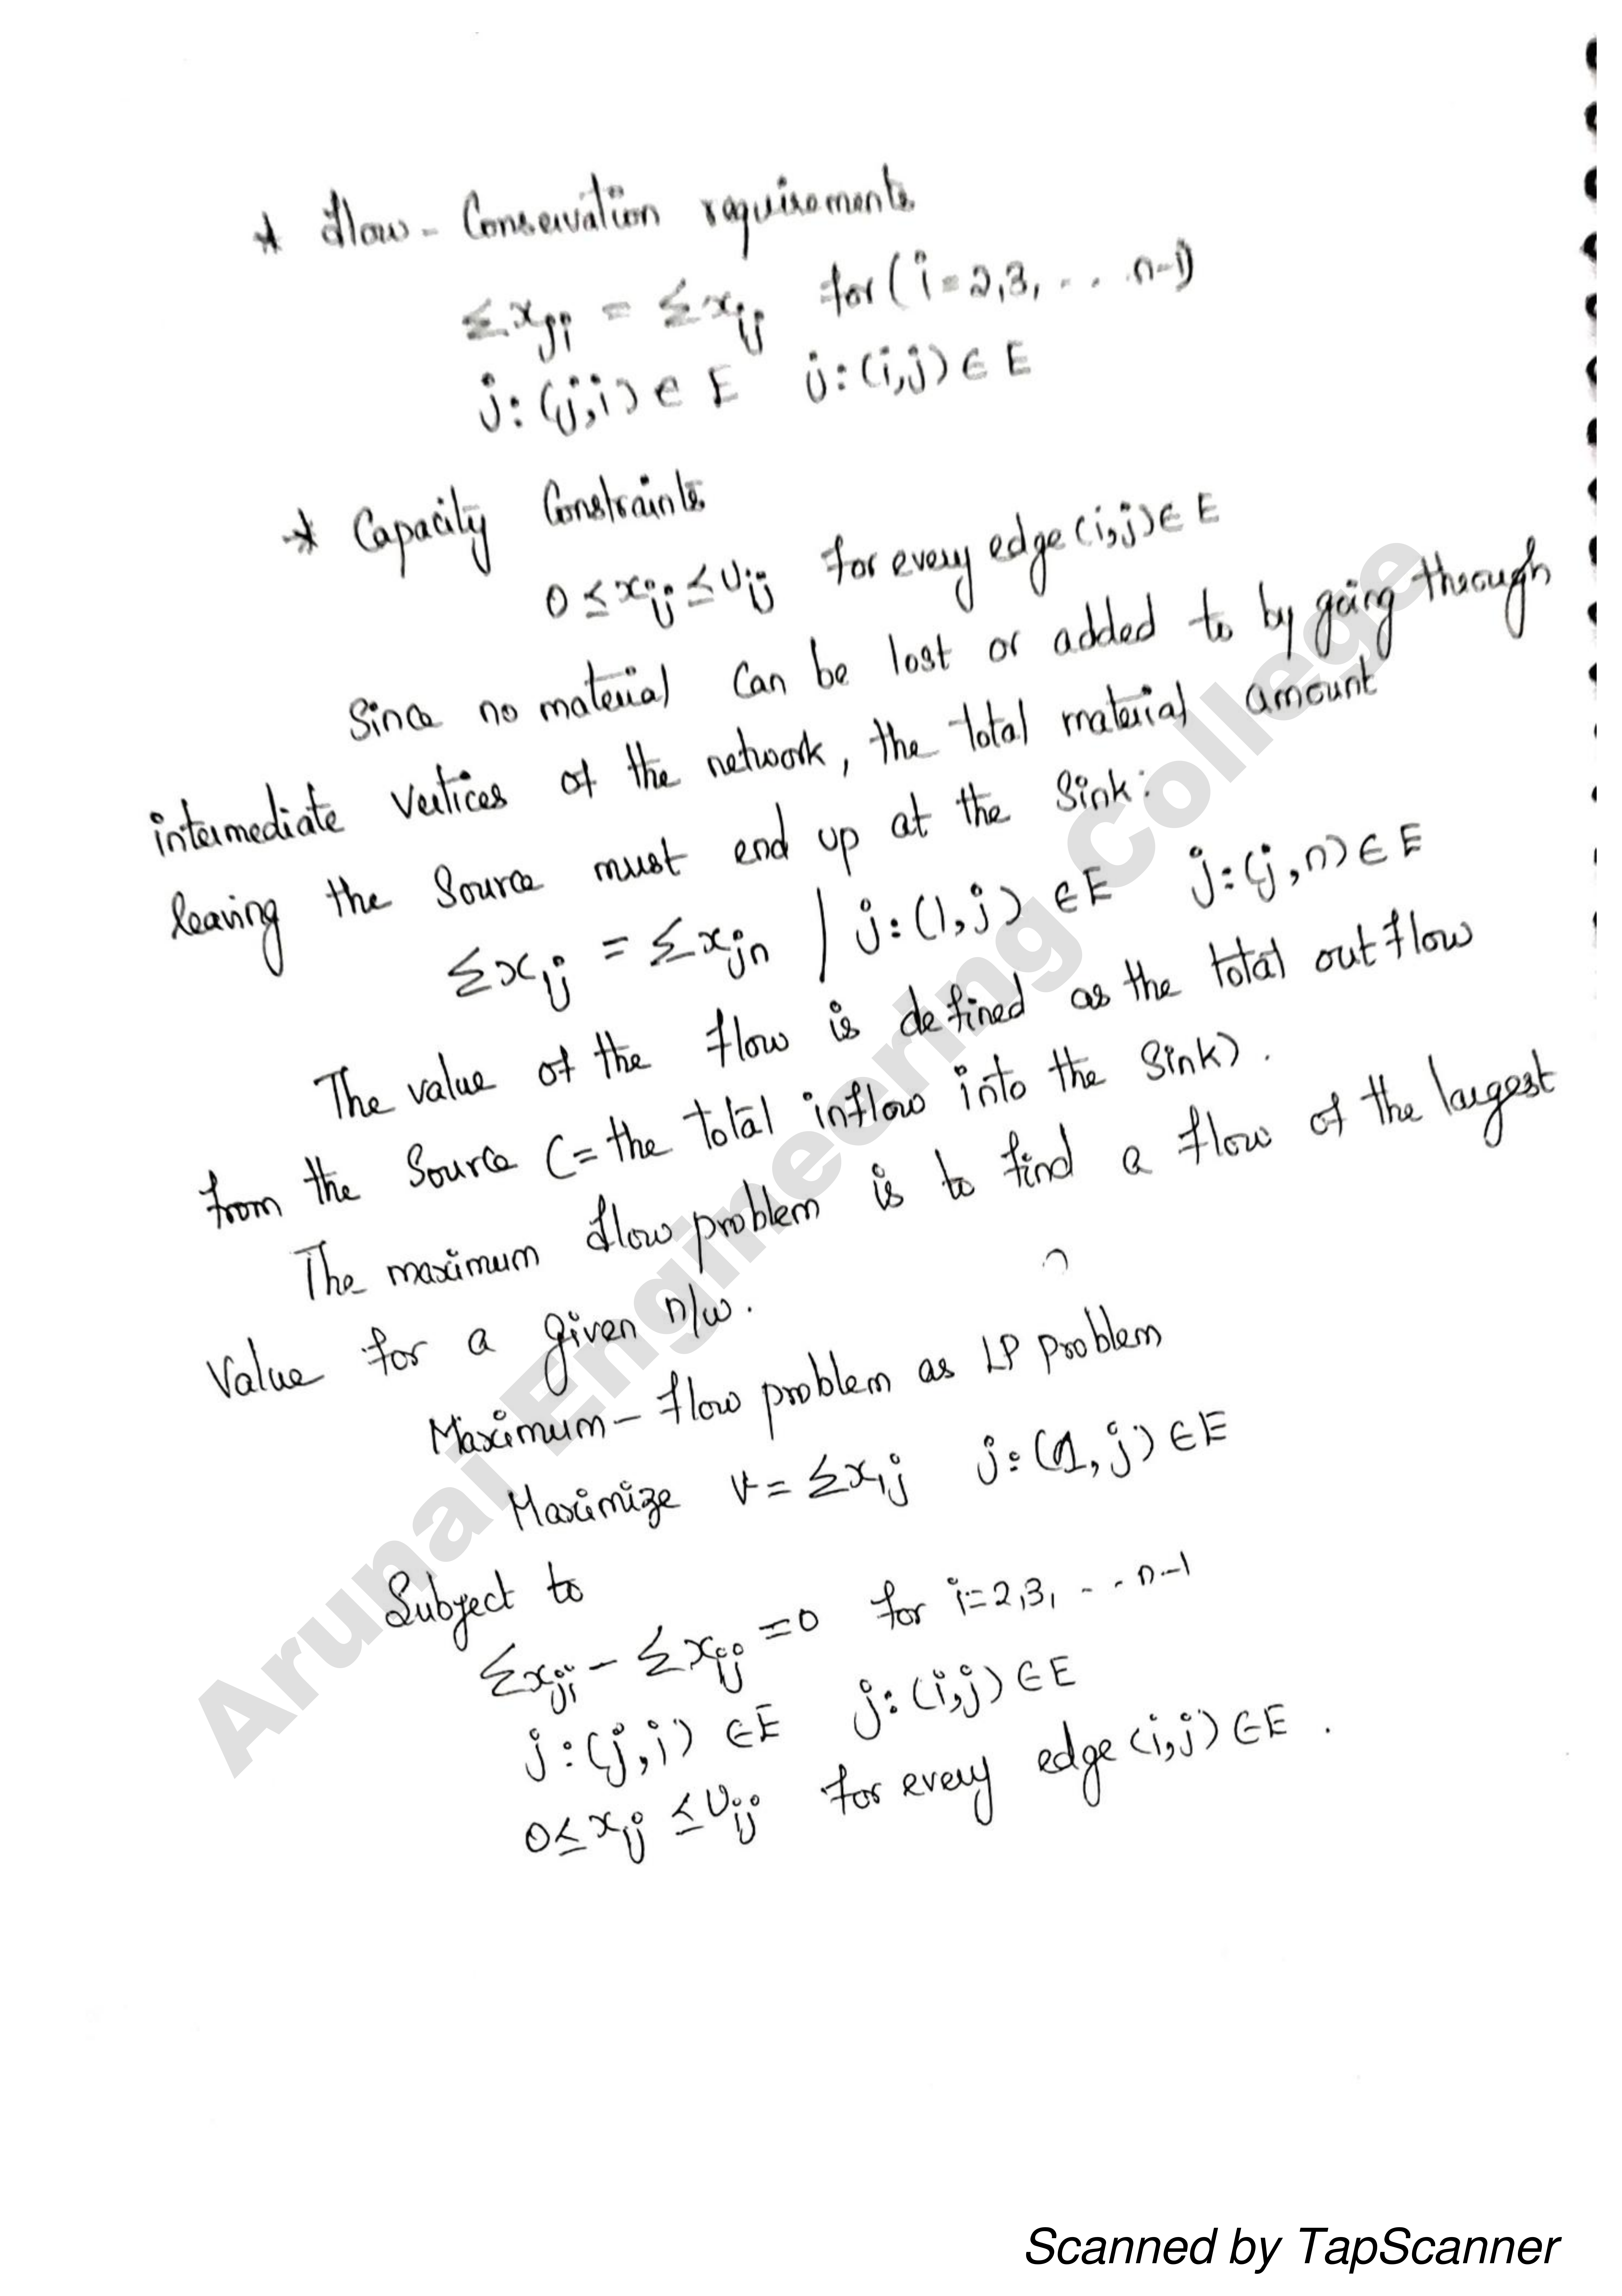 * Flow - Conservation requirements
Σxji = Σxij for (i=2,3, .. n-1)
j:(j,i) ∈ E j:(i,j) ∈ E
* Capacity Constraints
0 ≤ xij ≤ Uij for every edge (i,j) ∈ E
Since no material can be lost or added to by going through
intermediate vertices of the network, the total material amount
leaving the Source must end up at the Sink:
Σx1j = Σxjn / j:(1,j) ∈ E j:(j,n) ∈ E
The value of the flow is defined as the total outflow
from the Source (= the total inflow into the Sink).
The maximum flow problem is to find a flow of the largest
Value for a given n/w.
Maximum - flow problem as LP problem
Maximize v = Σx1j j:(1,j) ∈ E
Subject to
Σxji - Σxij = 0 for i=2,3, .. n-1
j:(j,i) ∈ E j:(i,j) ∈ E
0 ≤ xij ≤ Uij for every edge (i,j) ∈ E .
Arunai Engineering College
Scanned by TapScanner